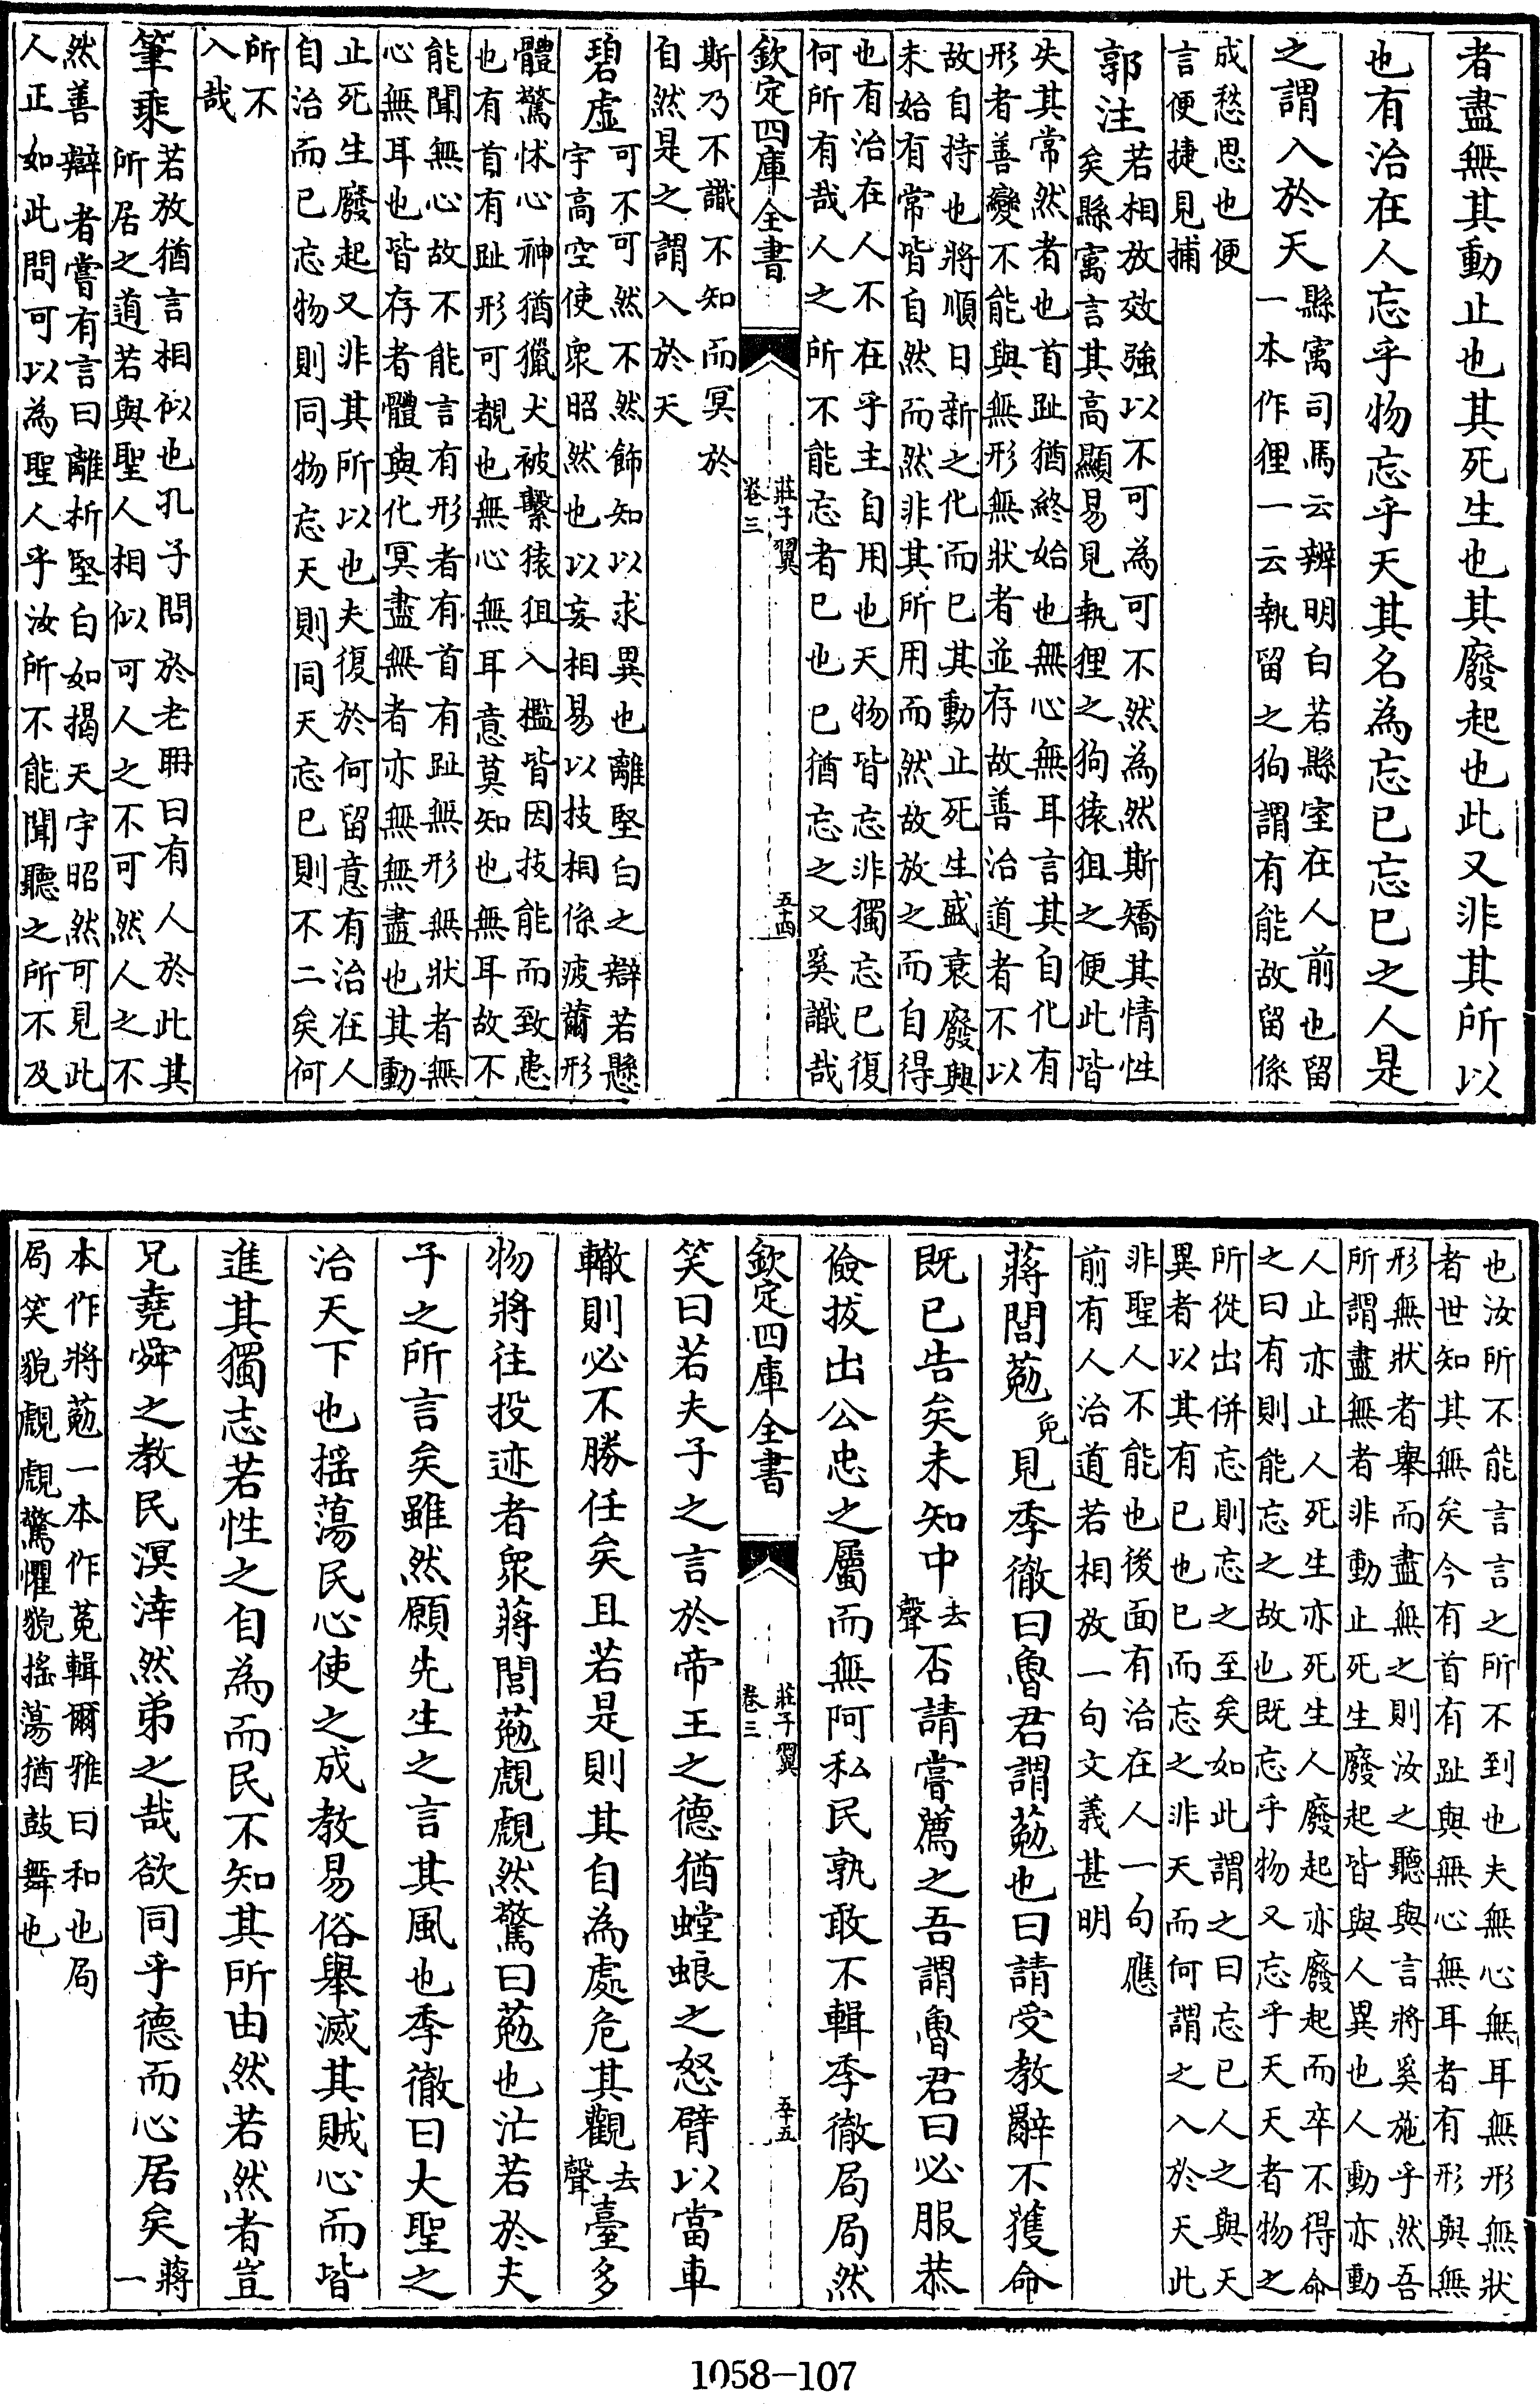 者盡無其動止也其死生也其廢起也此又非其所以
也有治在人忘乎物忘乎天其名為忘已忘已之人是
之謂入於天
縣㝢司馬云辨明白若縣室在人前也留
一本作狸一云執留之狗謂有能故留係
成愁思也便
言便捷見捕
郭注
若相放效強以不可為可不然為然斯矯其情性
矣縣㝢言其高顯易見執狸之狗猿狙之便此皆
失其常然者也首趾猶終始也無心無耳言其自化有
形者善變不能與無形無狀者並存故善治道者不以
故自持也將順日新之化而已其動止死生盛衰廢興
未始有常皆自然而然非其所用而然故放之而自得
也有治在人不在乎主自用也天物皆忘非獨忘已復
何所有哉人之所不能忘者已也已猶忘之又奚識哉
欽定四庫全書
莊子翼
卷三
五十四
斯乃不識不知而冥於
自然是之謂入於天
碧虛
可不可然不然飾知以求異也離堅白之辯若懸
宇高空使衆昭然也以妄相易以技相係疲薾形
體驚怵心神猶獵犬被繫猿狙入檻皆因技能而致患
也有首有趾形可覩也無心無耳意莫知也無耳故不
能聞無心故不能言有形者有首有趾無形無狀者無
心無耳也皆存者體與化冥盡無者亦無無盡也其動
止死生廢起又非其所以也夫復於何留意有治在人
自治而已忘物則同物忘天則同天忘已則不二矣何
所不
入哉
筆乘
若放猶言相似也孔子問於老聃曰有人於此其
所居之道若與聖人相似可人之不可然人之不
然善辯者嘗有言曰離析堅白如揭天宇昭然可見此
人正如此問可以為聖人乎汝所不能聞聽之所不及
也汝所不能言言之所不到也夫無心無耳無形無狀
者世知其無矣今有首有趾與無心無耳者有形與無
形無狀者舉而盡無之則汝之聽與言將奚施乎然吾
所謂盡無者非動止死生廢起皆與人異也人動亦動
人止亦止人死生亦死生人廢起亦廢起而卒不得命
之曰有則能忘之故也既忘乎物又忘乎天天者物之
所從出併忘則忘之至矣如此謂之曰忘已人之與天
異者以其有已也已而忘之非天而何謂之入於天此
非聖人不能也後面有治在人一句應
前有人治道若相放一句文義甚明
蔣閭葂免見季徹曰魯君謂葂也曰請受教辭不獲命
既已告矣未知中去聲否請嘗薦之吾謂魯君曰必服恭
儉拔出公忠之屬而無阿私民孰敢不輯季徹局局然
欽定四庫全書
莊子翼
卷三
五十五
笑曰若夫子之言於帝王之德猶螳蜋之怒臂以當車
轍則必不勝任矣且若是則其自為處危其觀去聲臺多
物將往投迹者衆蔣閭葂覤覤然驚曰葂也汒若於夫
子之所言矣雖然願先生之言其風也季徹曰大聖之
治天下也搖蕩民心使之成教易俗舉滅其賊心而皆
進其獨志若性之自為而民不知其所由然若然者豈
兄堯舜之教民溟涬然弟之哉欲同乎德而心居矣
蔣
一
本作將葂一本作莬輯爾雅曰和也局
局笑貌覤覤驚懼貌搖蕩猶鼓舞也
1058-107